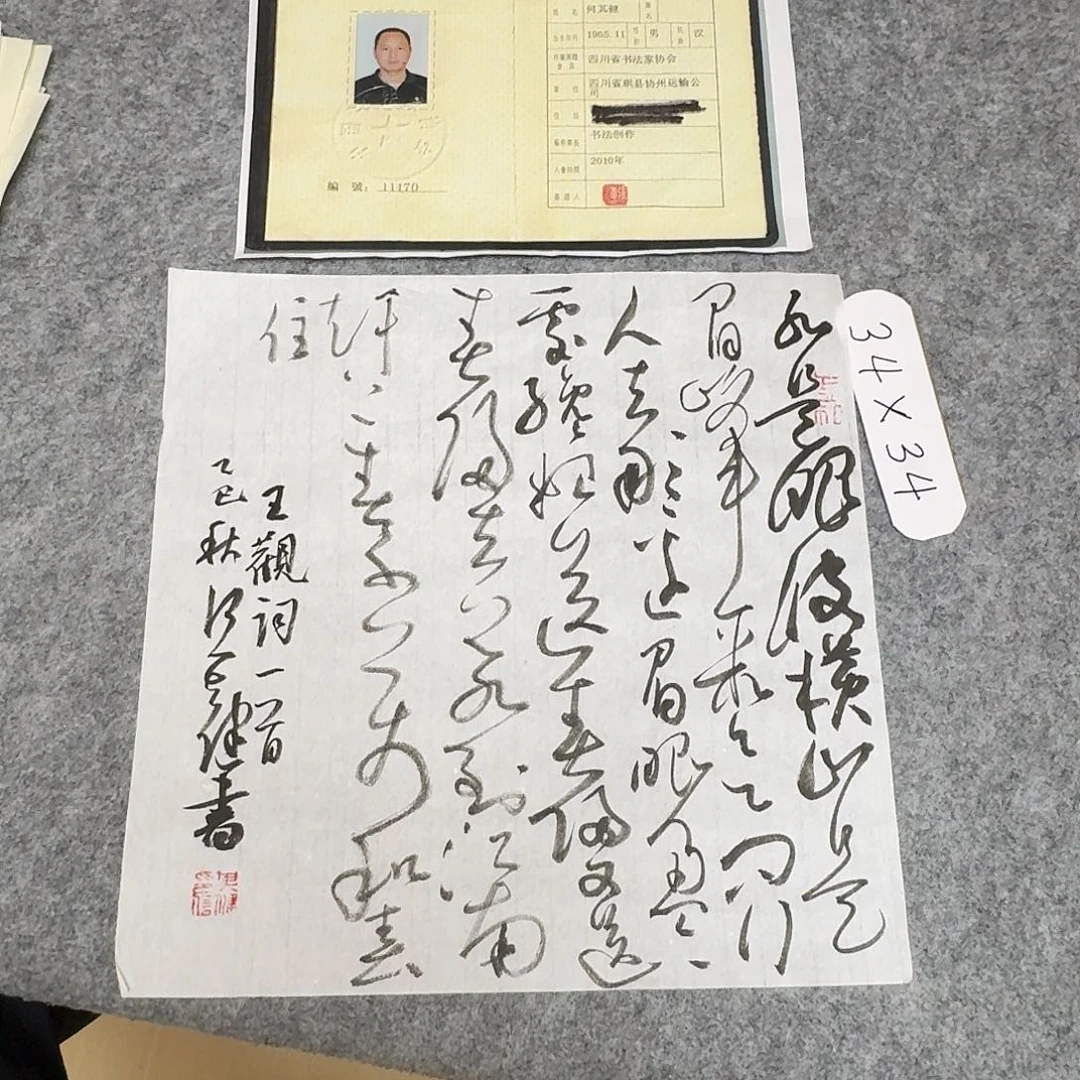 姓名 何其健
出生年月 1965.11 性别 男 民族 汉
四川省书法家协会
四川省珙县协州运输公
司
书法创作
入會時間 2010年
編號：11170
34×34
水是眼波横山是
眉峰聚欲问行
人去那边眉眼盈盈
處纔始送春归又送
君归去若到江南
赶上春千万和春
住
王觀词一首
乙巳秋何其健書